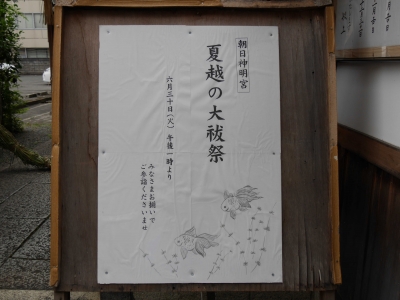 朝日神明宮
夏越の大祓祭
六月三十日(火) 午後一時より
みなさまお揃いで
ご参詣くださいませ